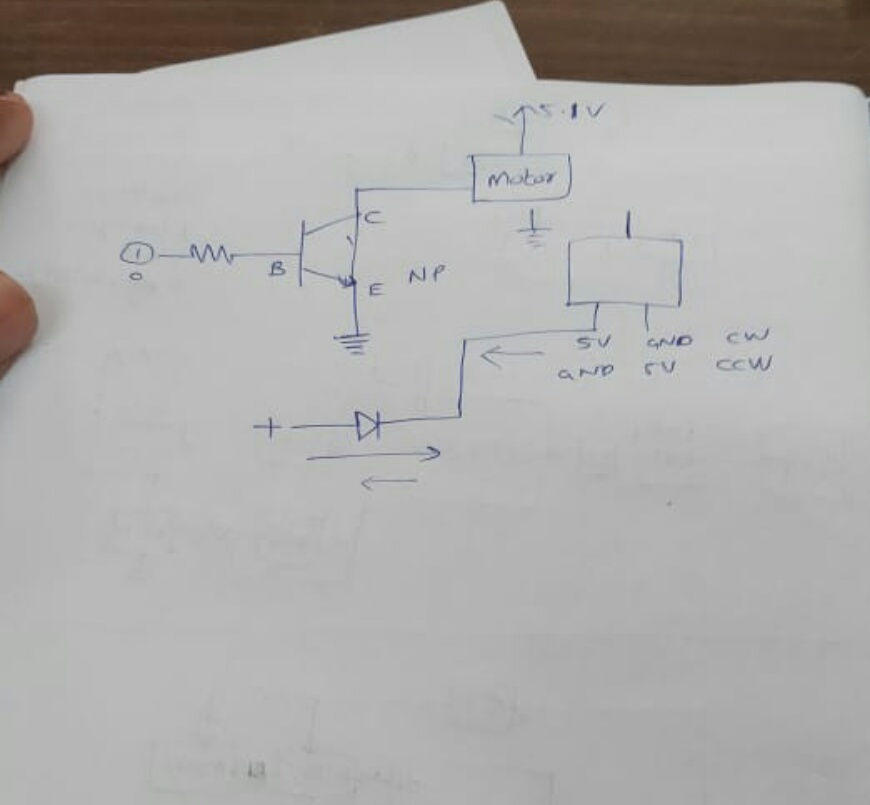 5.1V
Motor
C
1
0
B
E
NP
5V GND CW
GND 5V CCW
+